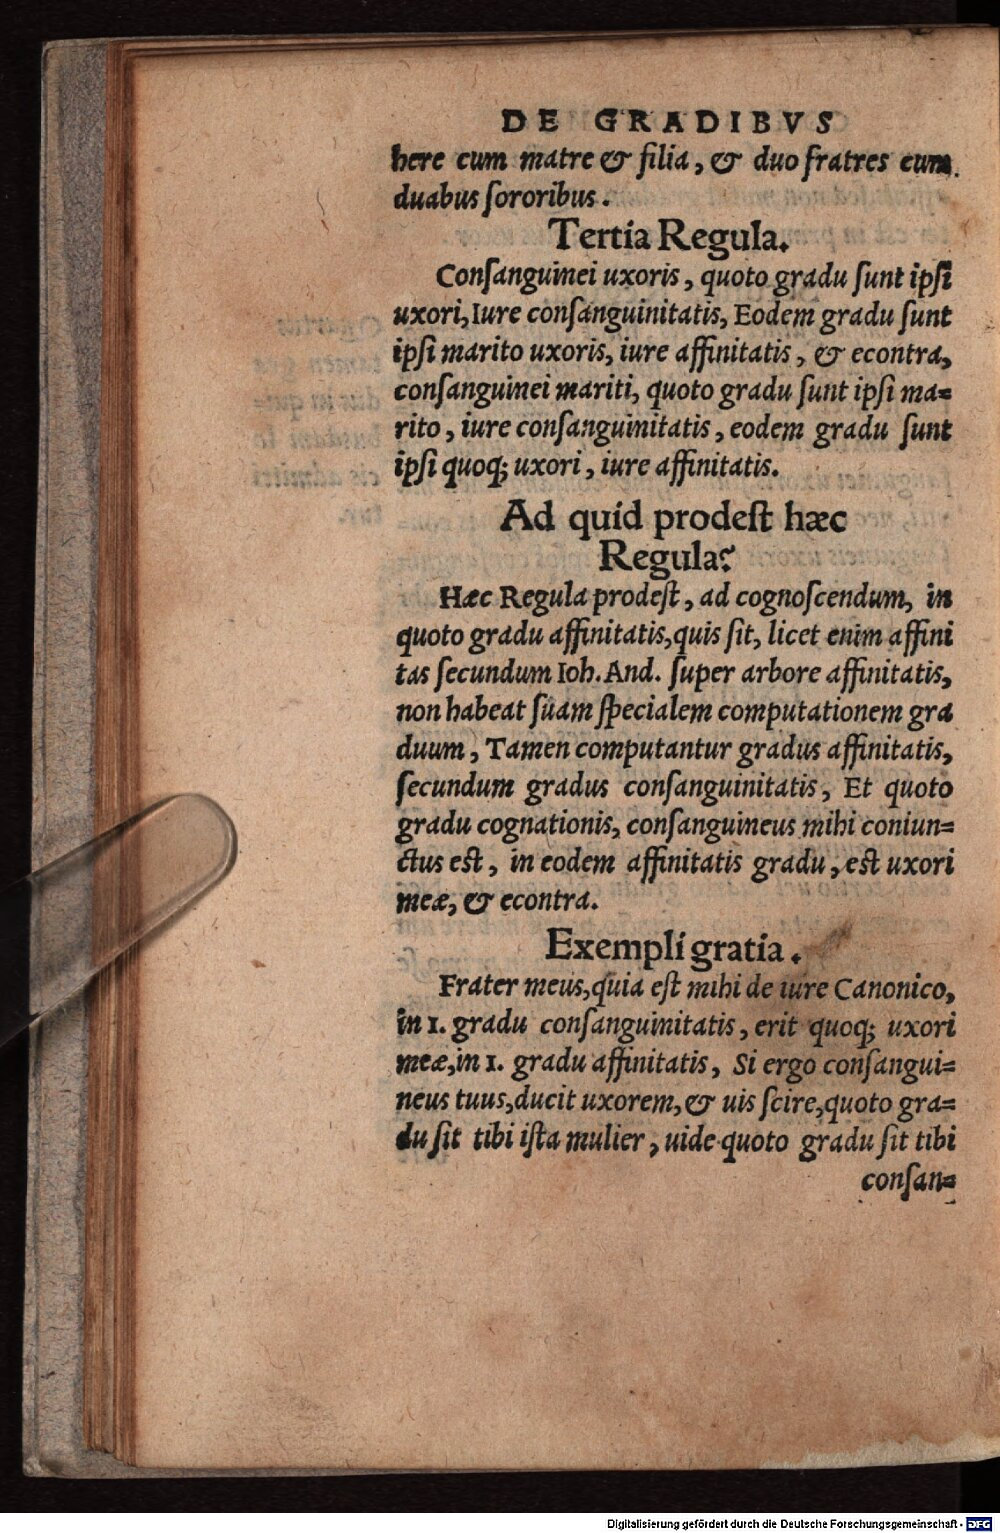 DE GRADIBVS
bere cum matre & filia, & duo fratres cum
duabus sororibus.
Tertia Regula.
Consanguinei uxoris, quoto gradu sunt ipsi
uxori, Iure consanguinitatis, Eodem gradu sunt
ipsi marito uxoris, iure affinitatis, & econtra,
consanguinei mariti, quoto gradu sunt ipsi ma=
rito, iure consanguinitatis, eodem gradu sunt
ipsi quoq; uxori, iure affinitatis.
Ad quid prodest hæc
Regula?
Hæc Regula prodest, ad cognoscendum, in
quoto gradu affinitatis, quis sit, licet enim affini
tas secundum Ioh. And. super arbore affinitatis,
non habeat suam specialem computationem gra
duum, Tamen computantur gradus affinitatis,
secundum gradus consanguinitatis, Et quoto
gradu cognationis, consanguineus mihi coniun=
ctus est, in eodem affinitatis gradu, est uxori
meæ, & econtra.
Exempli gratia.
Frater meus, quia est mihi de iure Canonico,
in 1. gradu consanguinitatis, erit quoq; uxori
meæ, in 1. gradu affinitatis, Si ergo consangui=
neus tuus, ducit uxorem, & uis scire, quoto gra=
du sit tibi ista mulier, uide quoto gradu sit tibi
consan=
Digitalisierung gefördert durch die Deutsche Forschungsgemeinschaft - DFG